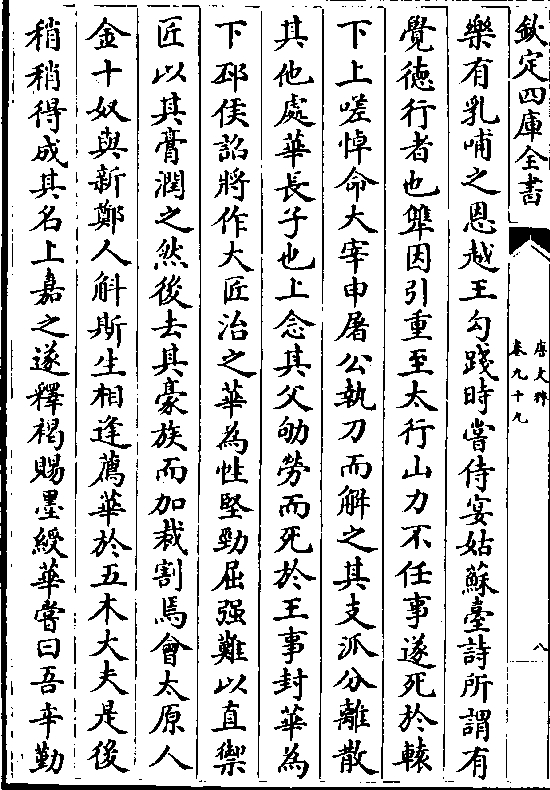 欽定四庫全書
唐文粹
卷九十九
八
樂有乳哺之恩越王勾踐時嘗侍宴姑蘇臺詩所謂有
覺徳行者也犨因引重至太行山力不任事遂死於轅
下上嗟悼命大宰申屠公執刀而解之其支派分離散
其他處華長子也上念其父劬勞而死於王事封華為
下邳侯詔將作大匠治之華為性堅勁屈强難以直禦
匠以其膏潤之然後去其豪族而加裁割焉會太原人
金十奴與新鄭人斛斯生相逢薦華於五木大夫是後
稍稍得成其名上嘉之遂釋褐賜墨綬華嘗曰吾辛勤